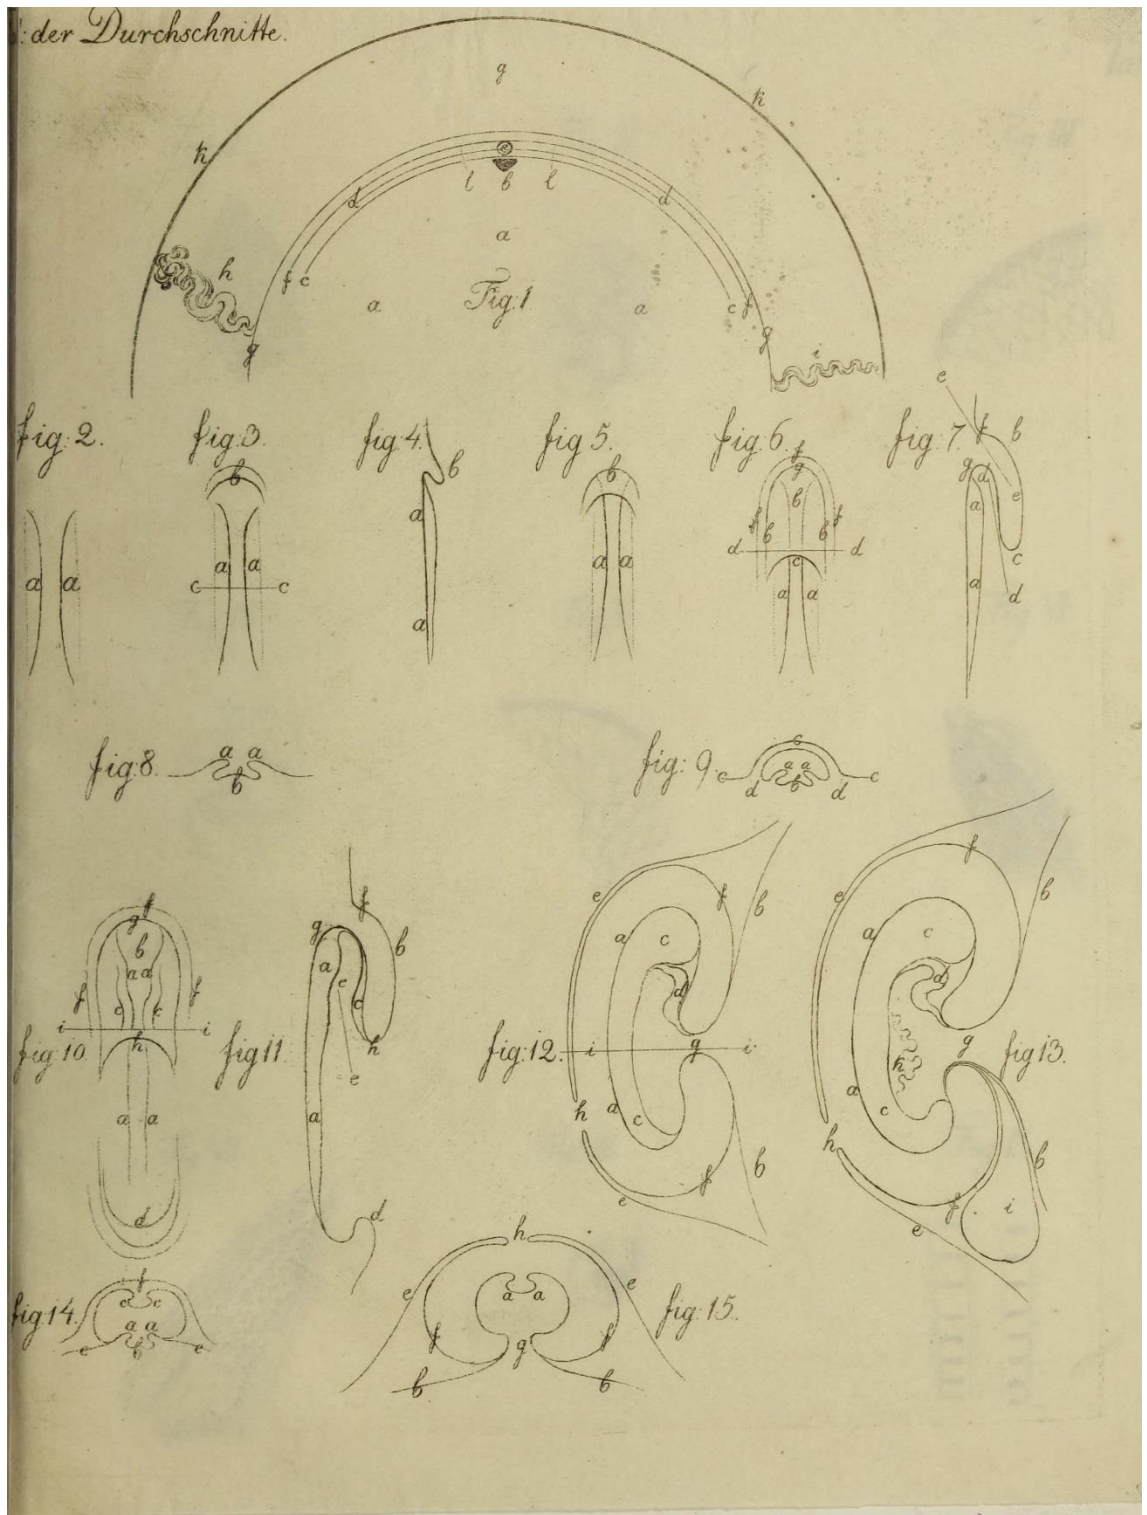 : der Durchschnitte.
g
k
k
e
l b l
d d
a
h
f c
a Fig: 1 a
c f
g g
i
fig: 2.
a a
fig: 3.
b
a a
c c
fig: 4.
b
a
a
fig 5.
b
a a
fig: 6.
f
g
b
f b b f
d d
c
a a
fig: 7.
e
f b
g d
a e
c
a d
fig: 8.
a a
b
fig: 9.
c
a a
c d b d c
fig: 10.
f
g
b
a a
f c c f
i i
h
a a
d
fig 11.
f
g b
a e
c
h
e
a
d
fig: 12.
e f b
a c
d
i g i
h a c
b
f
e
fig 13.
f
e b
a c
d
g
h
a c
h
b
f i
e
fig 14.
f
c c
a a
e b e
fig: 15.
h
e e
a a
f g f
b b